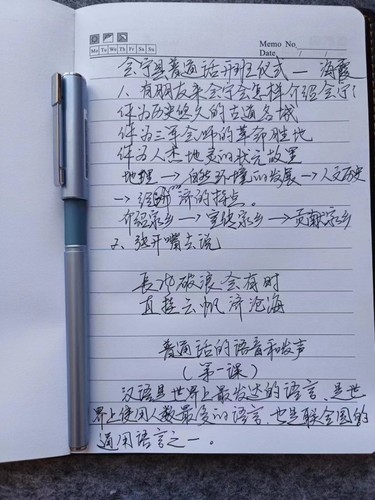 Memo No.
Mo Tu We Th Fr Sa Su
Date / /
会宁县普通话开班仪式 — 海霞
1、有朋友来会宁会怎样介绍会宁?
作为历史悠久的古道名城
作为三军会师的革命胜地
作为人杰地灵的状元故里
地理→自然环境的发展→人文历史
→经济的特点。
介绍家乡→宣传家乡→贡献家乡
2、张开嘴去说
長风破浪会有时
直挂云帆济沧海
普通话的语音和发声
(第一课)
汉语是世界上最发达的语言、是世
界上使用人数最多的语言、也是联合国的
通用语言之一。